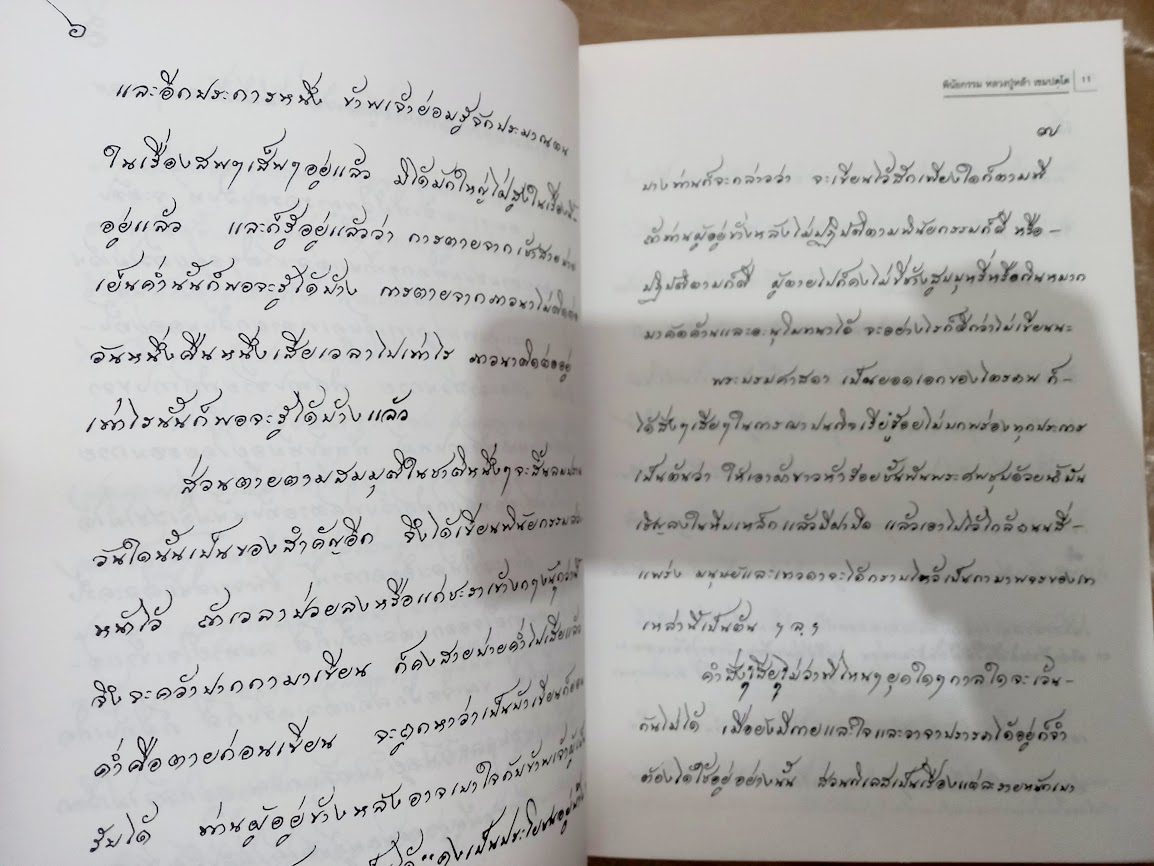 ๖
และอีกประการหนึ่ง ข้าพเจ้าย่อมรู้จักประมาณตน
ในเรื่องสพๆเส็พๆอยู่แล้ว มิได้มักใหญ่ไฝ่สูงในเรื่องนี้-
อยู่แล้ว และก็รู้อยู่แล้วว่า การตายจากเช้าสายบ่าย
เย็นค่ำนั้นก็พอจะรู้ได้บ้าง การตายจากภาวนาไม่ติดต่อ
วันหนึ่งคืนหนึ่งเสียเวลาไปเท่าไร ภาวนาติดต่ออยู่
เท่าไรนั้นก็พอจะรู้ได้บ้างแล้ว
ส่วนตายตามสมมุติในชาติหนึ่งๆจะสิ้นลมปราณ
วันใดนั้นเป็นของสำคัญอีก จึงได้เขียนพินัยกรรมล่วง
หน้าไว้ ถ้าเวลาป่วยลงหรือแก่ชะราเข้างกๆงันๆกว่านี้
จึงจะคว้าปากกามาเขียน ก็คงสายบ่ายค่ำไปเสียแล้ว
ค่ำคือตายก่อนเขียน จะถูกหาว่าเป็นบ้าเขียนก็ยอม
รับได้ ท่านผู้อยู่ข้างหลังอาจเบาใจกับข้าพเจ้า
คงเป็นประโยชน์อยู่
พินัยกรรม หลวงปู่หล้า เขมปตฺโต 11
๗
บางท่านก็จะกล่าวว่า จะเขียนไว้สักเพียงใดก็ตามที
ถ้าท่านผู้อยู่ข้างหลังไม่ปฏิบัติตามพินัยกรรมก็ดี หรือ-
ปฏิบัติตามก็ดี ผู้ตายไปก็คงไม่ชี้ชังสูบบุหรี่หรือกินหมาก
มาคัดค้านและอะนุโมทนาได้ จะอย่างไรก็ดีกว่าไม่เขียนนะ
พระบรมศาสดา เป็นยอดเอกของไตรภพ ก็-
ได้สั่งๆเสียๆในการฌาปนกิจเรียบร้อยไม่บกพร่องทุกประการ
เป็นต้นว่า ให้เอาผ้าขาวห้าร้อยชั้นพันพระศพชุบด้วยน้ำมัน
เชิญลงในหีบเหล็กแล้วมีฝาปิด แล้วเอาไปไว้ใกล้ถนนสี่-
แพร่ง มนุษย์และเทวดาจะได้กราบไหว้เป็นถาบาพจรของเขา
เหล่านี้เป็นต้น ฯลฯ
คำสั่งๆเสียๆไม่ว่าที่ไหนๆยุคใดๆกาลใดจะเว้น-
กันไม่ได้ เมื่อยังมีกายและใจและวาจาปรารภได้อยู่ก็จำ
ต้องได้ใช้อยู่อย่างนั้น ส่วนกิเลสเป็นเรื่องแต่ละรายหนักเบา